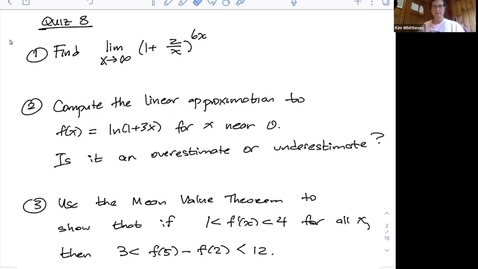 Quiz 8
① Find lim x→∞ (1 + 2/x)^6x
② Compute the linear approximation to
f(x) = ln(1+3x) for x near 0.
Is it an overestimate or underestimate?
③ Use the Mean Value Theorem to
show that if 1 < f'(x) < 4 for all x,
then 3 < f(5) - f(2) < 12.
Kim Whittlesey
2
16